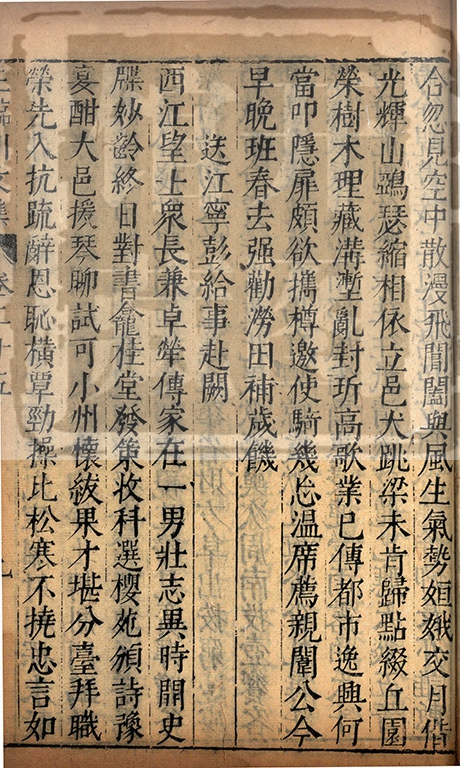 合忽見空中散漫飛閶闔與風生氣勢姮娥交月借
光輝山鵶瑟縮相依立邑犬跳梁未肯歸點綴丘園
榮樹木埋藏溝壍亂封圻高歌業已傳都市逸興何
當叩隱扉頗欲攜樽邀使騎幾忘溫席薦親闈公今
早晚班春去强勸澇田補歲饑
送江寧彭給事赴闕
西江望士衆長兼卓犖傳家在一男壯志異時開史
牒妙齡終日對書龕桂堂發策收科選櫻苑頒詩豫
宴酣大邑援琴聊試可小州懷紱果才堪分臺拜職
榮先入抗䟽辭恩恥橫覃勁操比松寒不撓忠言如
王臨川文集 卷二十五 九